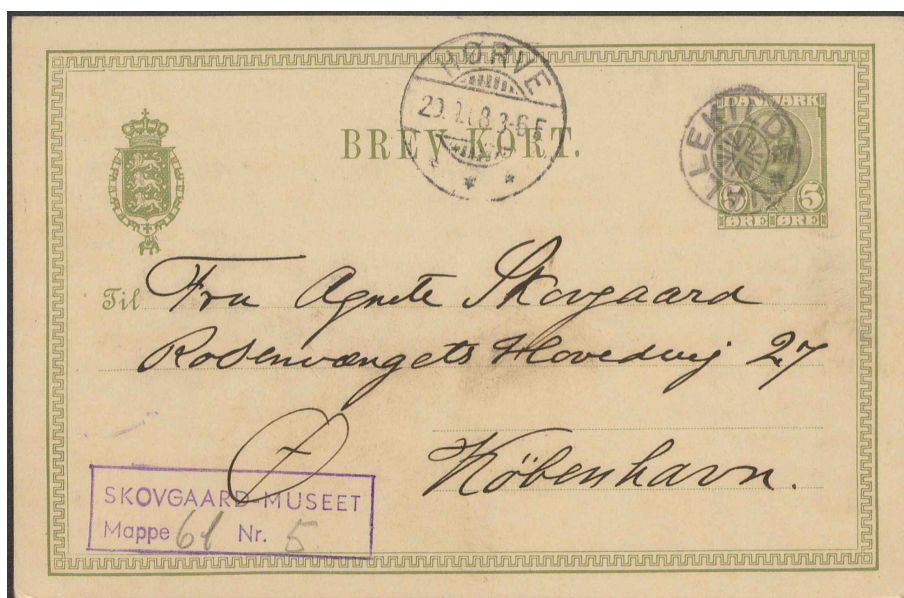 HØRVE
3-6 E
BREVKORT.
VALLEKILDE
DANMARK
5 5
ØRE ØRE
Til Fru Agnete Skovgaard
Rosenvængets Hovedvej 27
Ø København.
SKOVGAARD-MUSEET
Mappe 61 Nr. 5